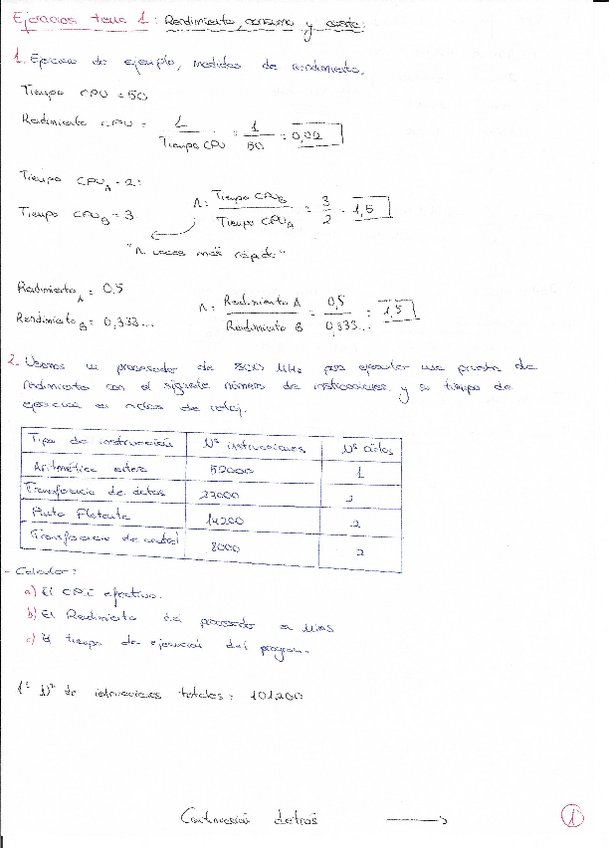 Ejercicios tema 1: Rendimiento, consumo y coste:
1. Ejercicio de ejemplo, medidas de rendimiento.
Tiempo CPU = 50
Rendimiento CPU = 1 / Tiempo CPU = 1 / 50 = 0,02
Tiempo CPU_A = 2:
Tiempo CPU_B = 3
n: Tiempo CPU_B / Tiempo CPU_A = 3 / 2 = 1,5
"n veces más rápido"
Rendimiento_A = 0,5
Rendimiento_B = 0,333...
n: Rendimiento A / Rendimiento B = 0,5 / 0,333... = 1,5
2. Usamos un procesador de MHz para ejecutar una prueba de
rendimiento con el siguiente número de instrucciones, y su tiempo de
ejecución en ciclos de reloj.
Tipo de instrucción Nº instrucciones Nº ciclos
Aritmética entera 52000 1
Transferencia de datos 27000
Punto Flotante 14200 2
Transferencia de control 8000 2
- Calcular:
a) El CPI efectivo.
b) El Rendimiento del procesador en MIPS
c) El tiempo de ejecución del programa.
1º Nº de instrucciones totales: 101200
Continuación detrás →
1